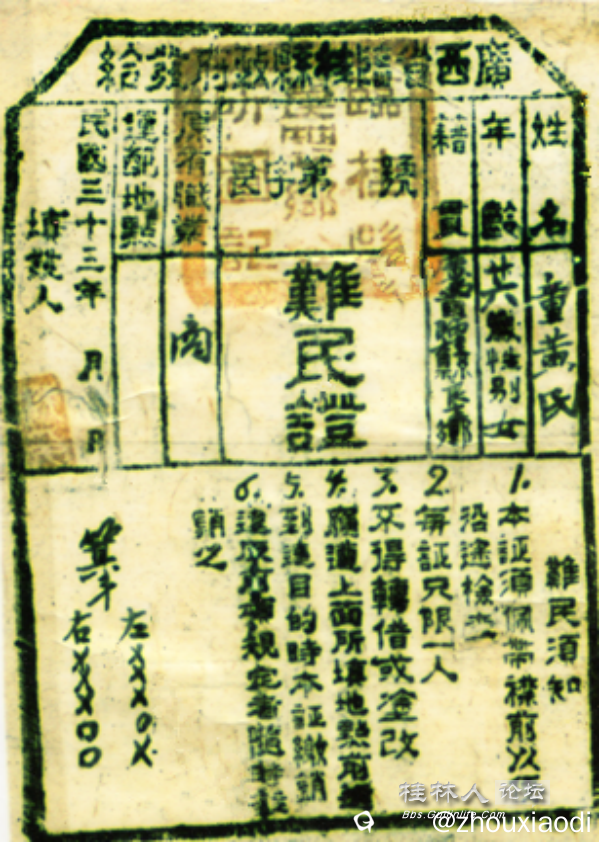 廣西省臨桂縣政府發給
姓名 童黃氏
年齡 廿六歲 性別 女
籍貫
字第 號
難民證
原有職業 商
運配地點
民國三十三年 月 日
填發人
難民須知
1. 本証須佩帶襟前以
沿途檢查
2. 每証只限一人
3. 不得轉借或塗改
4. 應遵上面所填地點前
5. 到達目的時本証繳銷
6. 違反前項規定者隨時
銷之
箕斗
左XXXOX
右XXXOO
桂林人论坛
Bbs.Guilinlife.Com
@zhouxiaodi